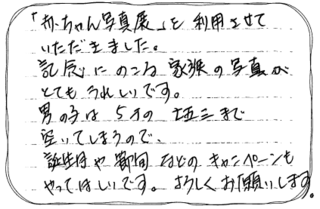 「赤ちゃん写真展」を利用させて
いただきました。
記念にのこる家族の写真が
とてもうれしいです。
男の子は5才の七五三まで
空いてしまうので、
誕生日や節句などのキャンペーンも
やってほしいです。よろしくお願いします。